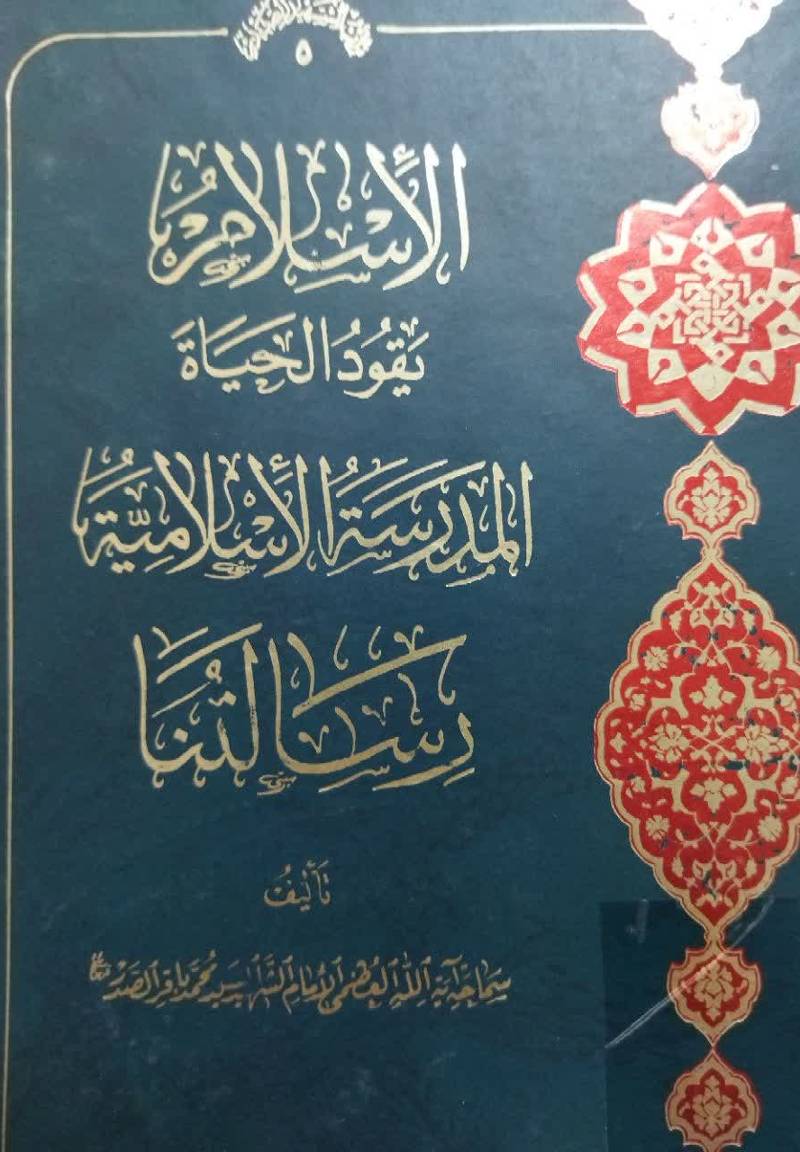 ٥
الإسلام
يَقُودُ الحَيَاةَ
المدرسة الإسلامية
رسالتنا
تأليف
سماحة آية الله العظمى الإمام الشهيد السيد محمد باقر الصدر